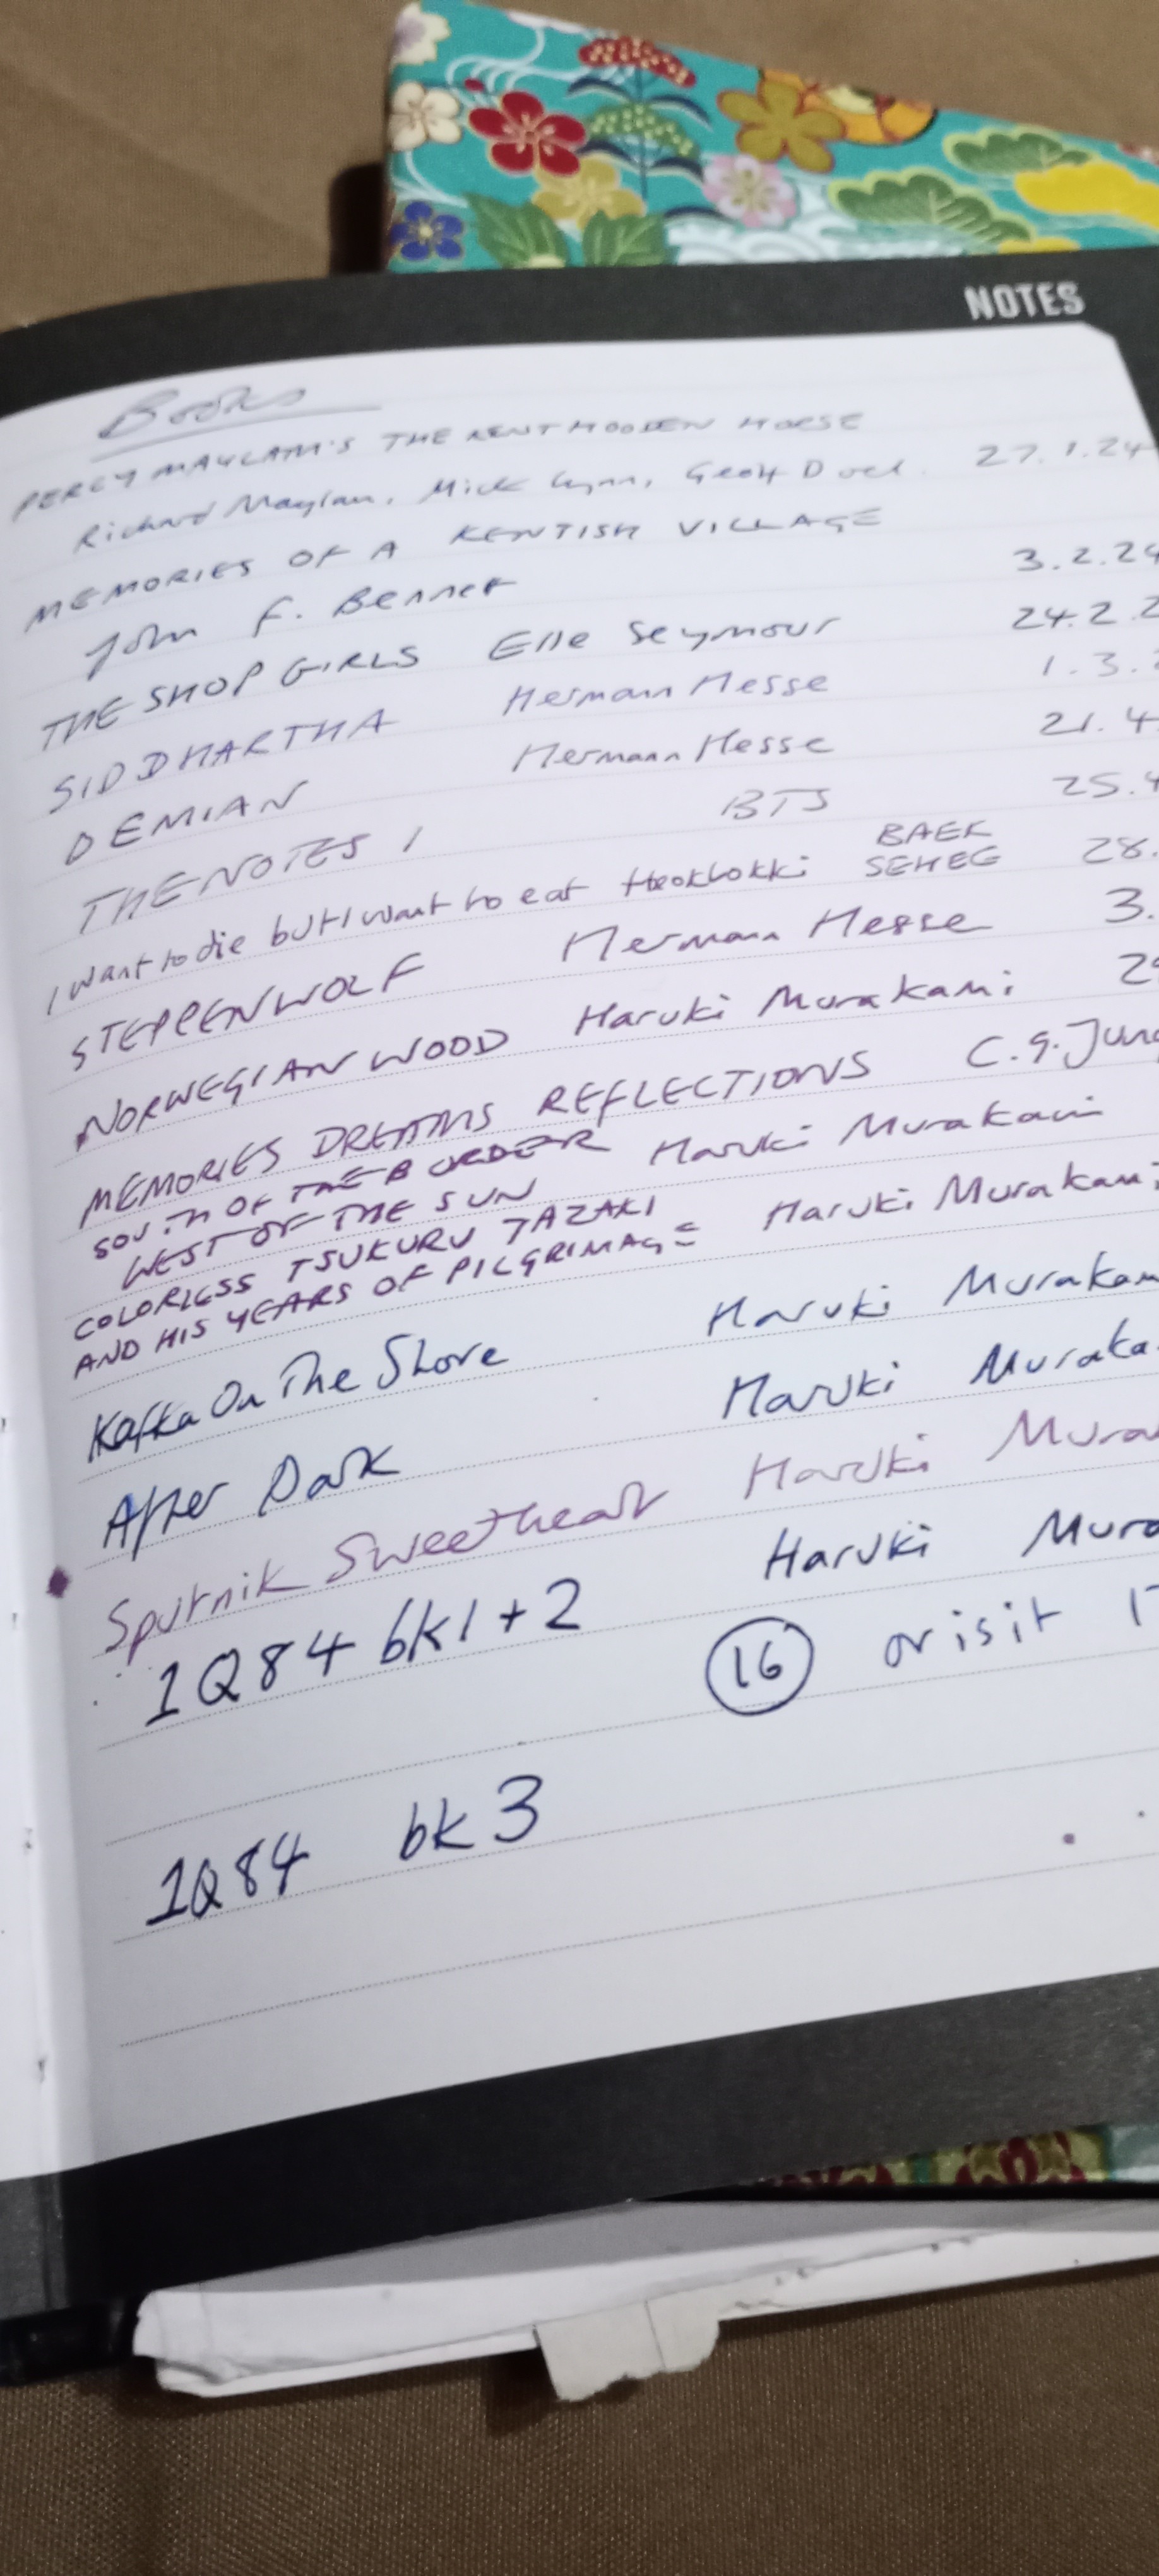 NOTES
Books
PERCY MAYLAM'S THE KENT HOODEN HORSE
Richard Maylam, Mick Lynn, Geoff Doel. 27.1.24
MEMORIES OF A KENTISH VILLAGE
John F. Bennet 3.2.24
THE SHOP GIRLS Elle Seymour 24.2.2
SIDDHARTHA Hermann Hesse 1.3.
DEMIAN Hermann Hesse 21.4
THE NOTES 1 BTS 25.4
I want to die but I want to eat tteokbokki BAEK SEHEE 28.
STEPPENWOLF Hermann Hesse 3.
NORWEGIAN WOOD Haruki Murakami 29
MEMORIES DREAMS REFLECTIONS C.G. Jung
SOUTH OF THE BORDER Haruki Murakami
WEST OF THE SUN
COLORLESS TSUKURU TAZAKI
AND HIS YEARS OF PILGRIMAGE Haruki Murakami
Kafka On The Shore Haruki Murakam
After Dark Haruki Muraka
Sputnik Sweetheart Haruki Mura
1Q84 bk1+2 Haruki Mura
16 or is it 17
1Q84 bk3